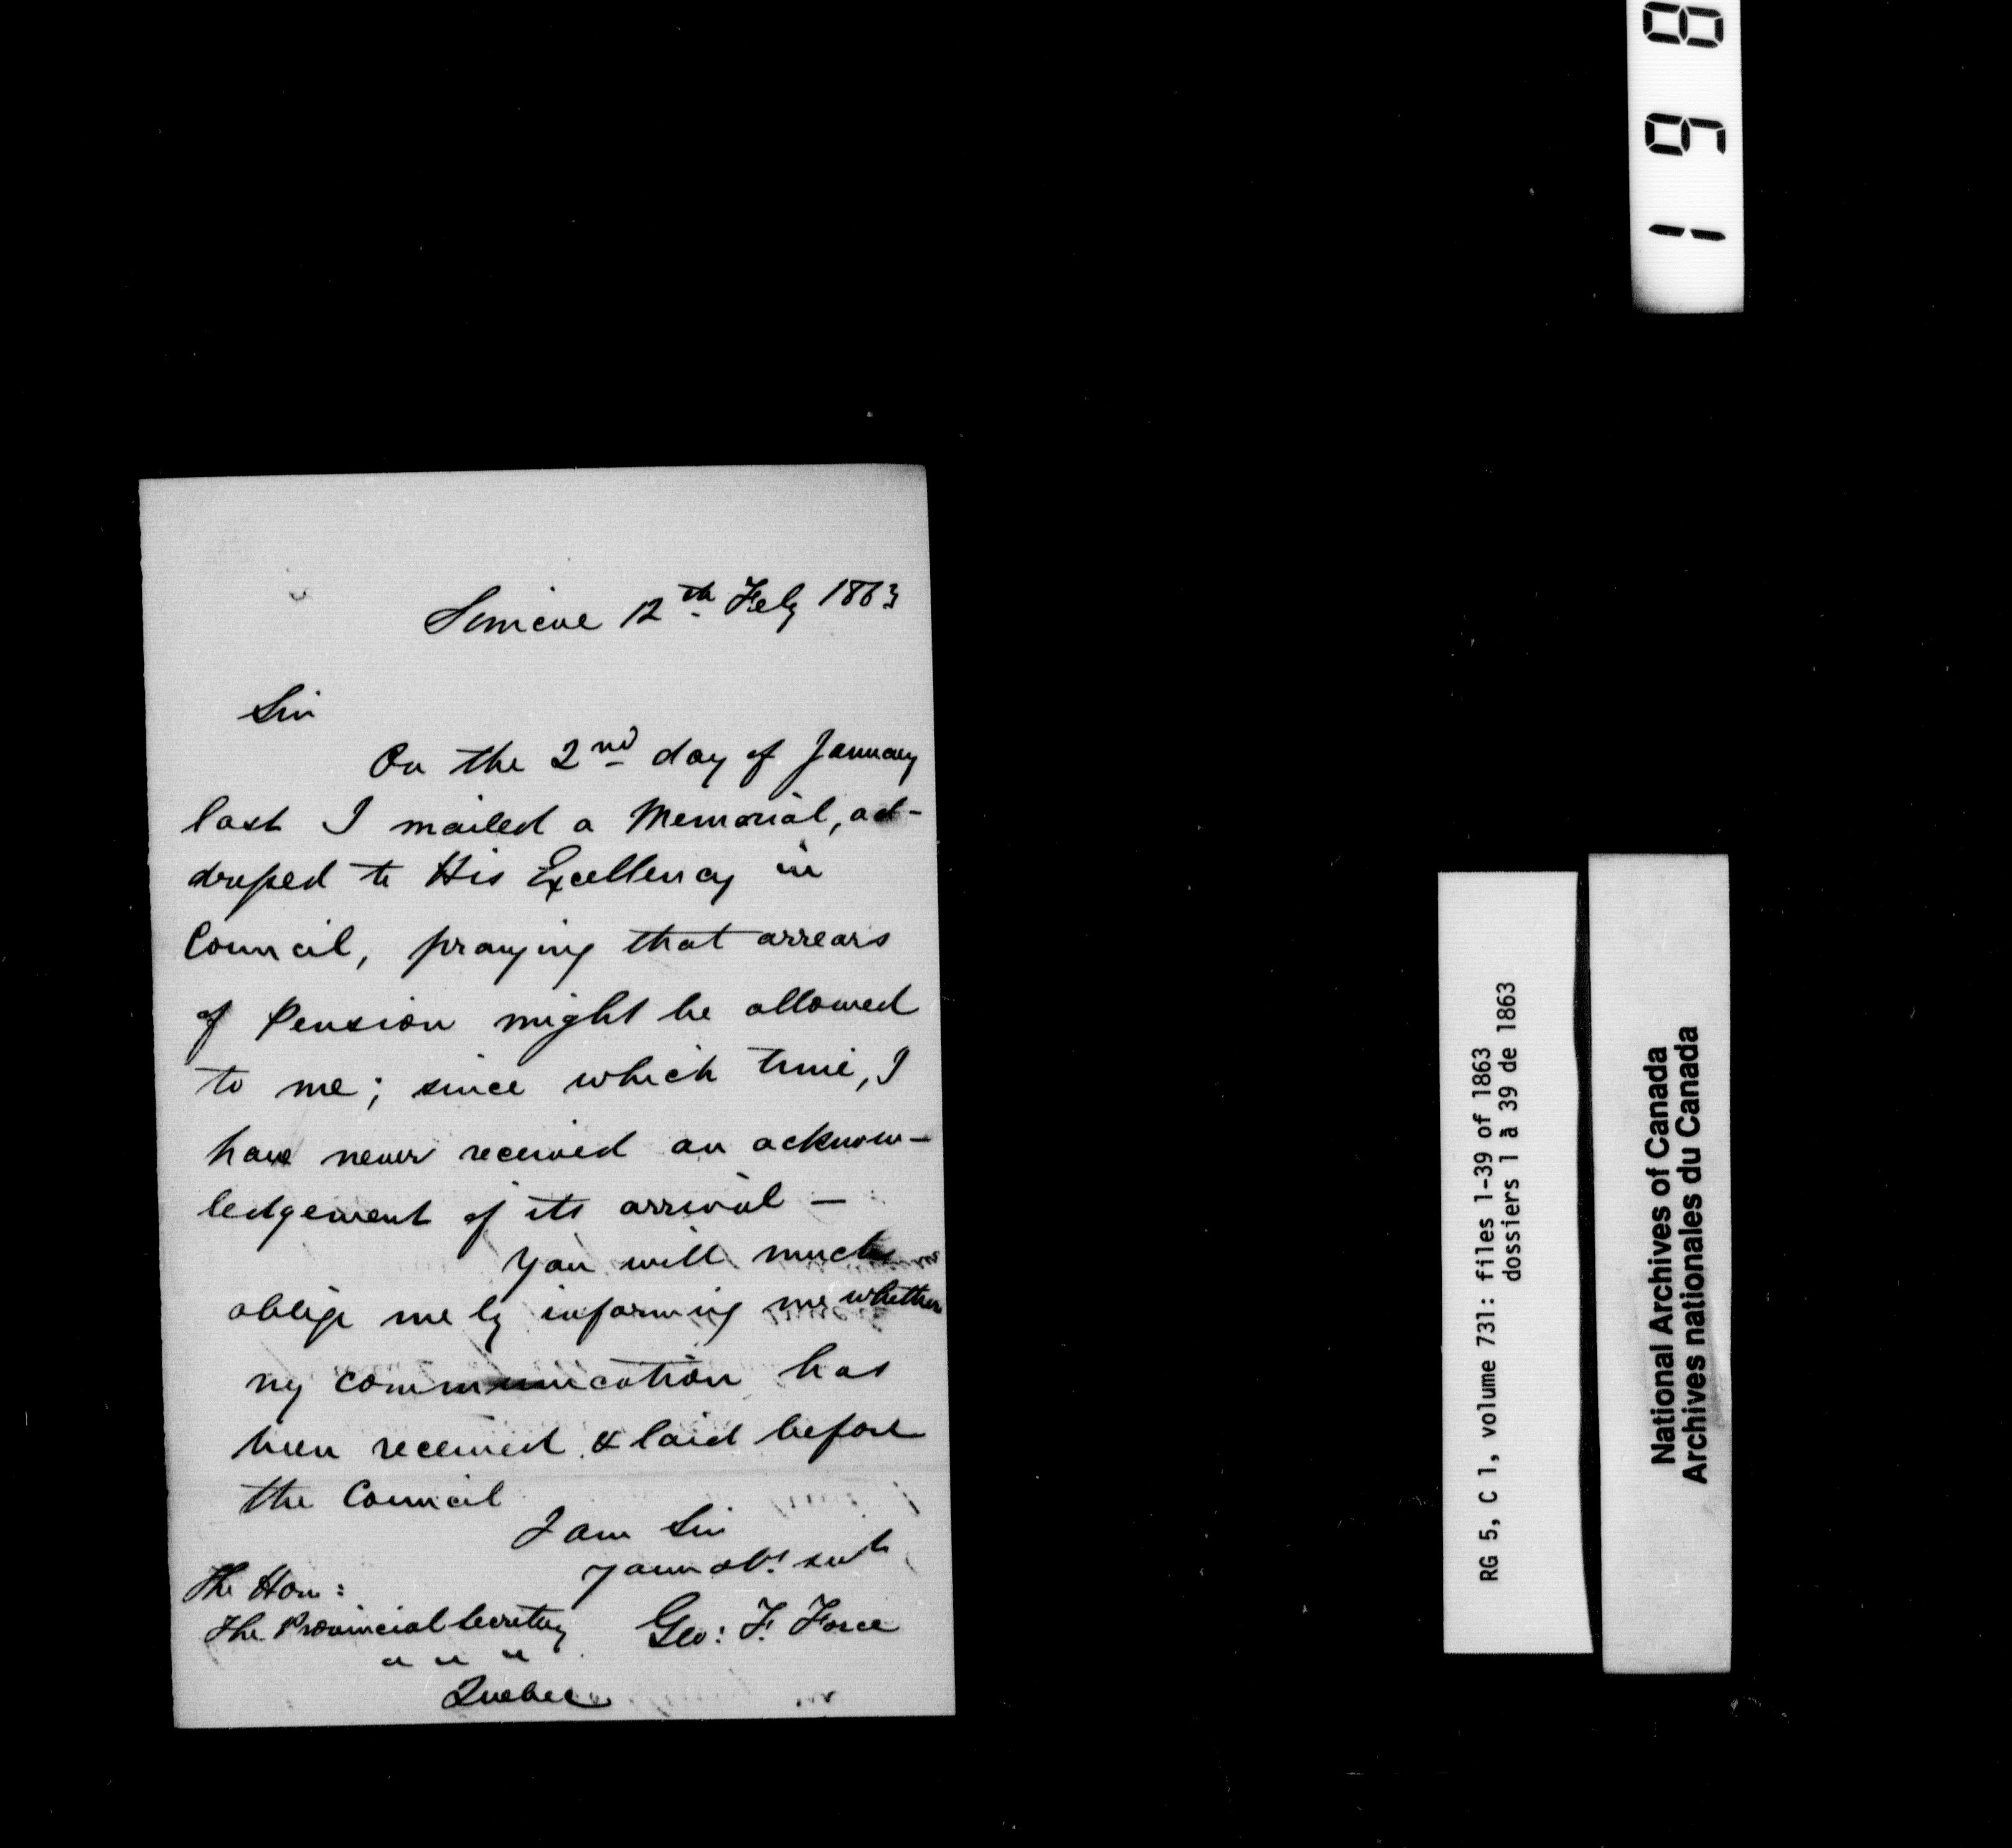 Simcoe 12th Feby 1863
Sir
On the 2nd day of January
last I mailed a Memorial, ad-
dressed to His Excellency in
Council, praying that arrears
of Pension might be allowed
to me; since which time, I
have never received an acknow-
ledgement of its arrival —
You will much
oblige me by informing me whether
my communication has
been received & laid before
the Council
I am Sir
Your obt. svt
The Hon:
The Provincial Secretary
Geo: F. Force
" " "
Quebec
1 9 8
RG 5, C 1, volume 731: files 1-39 of 1863
dossiers 1 à 39 de 1863
National Archives of Canada
Archives nationales du Canada